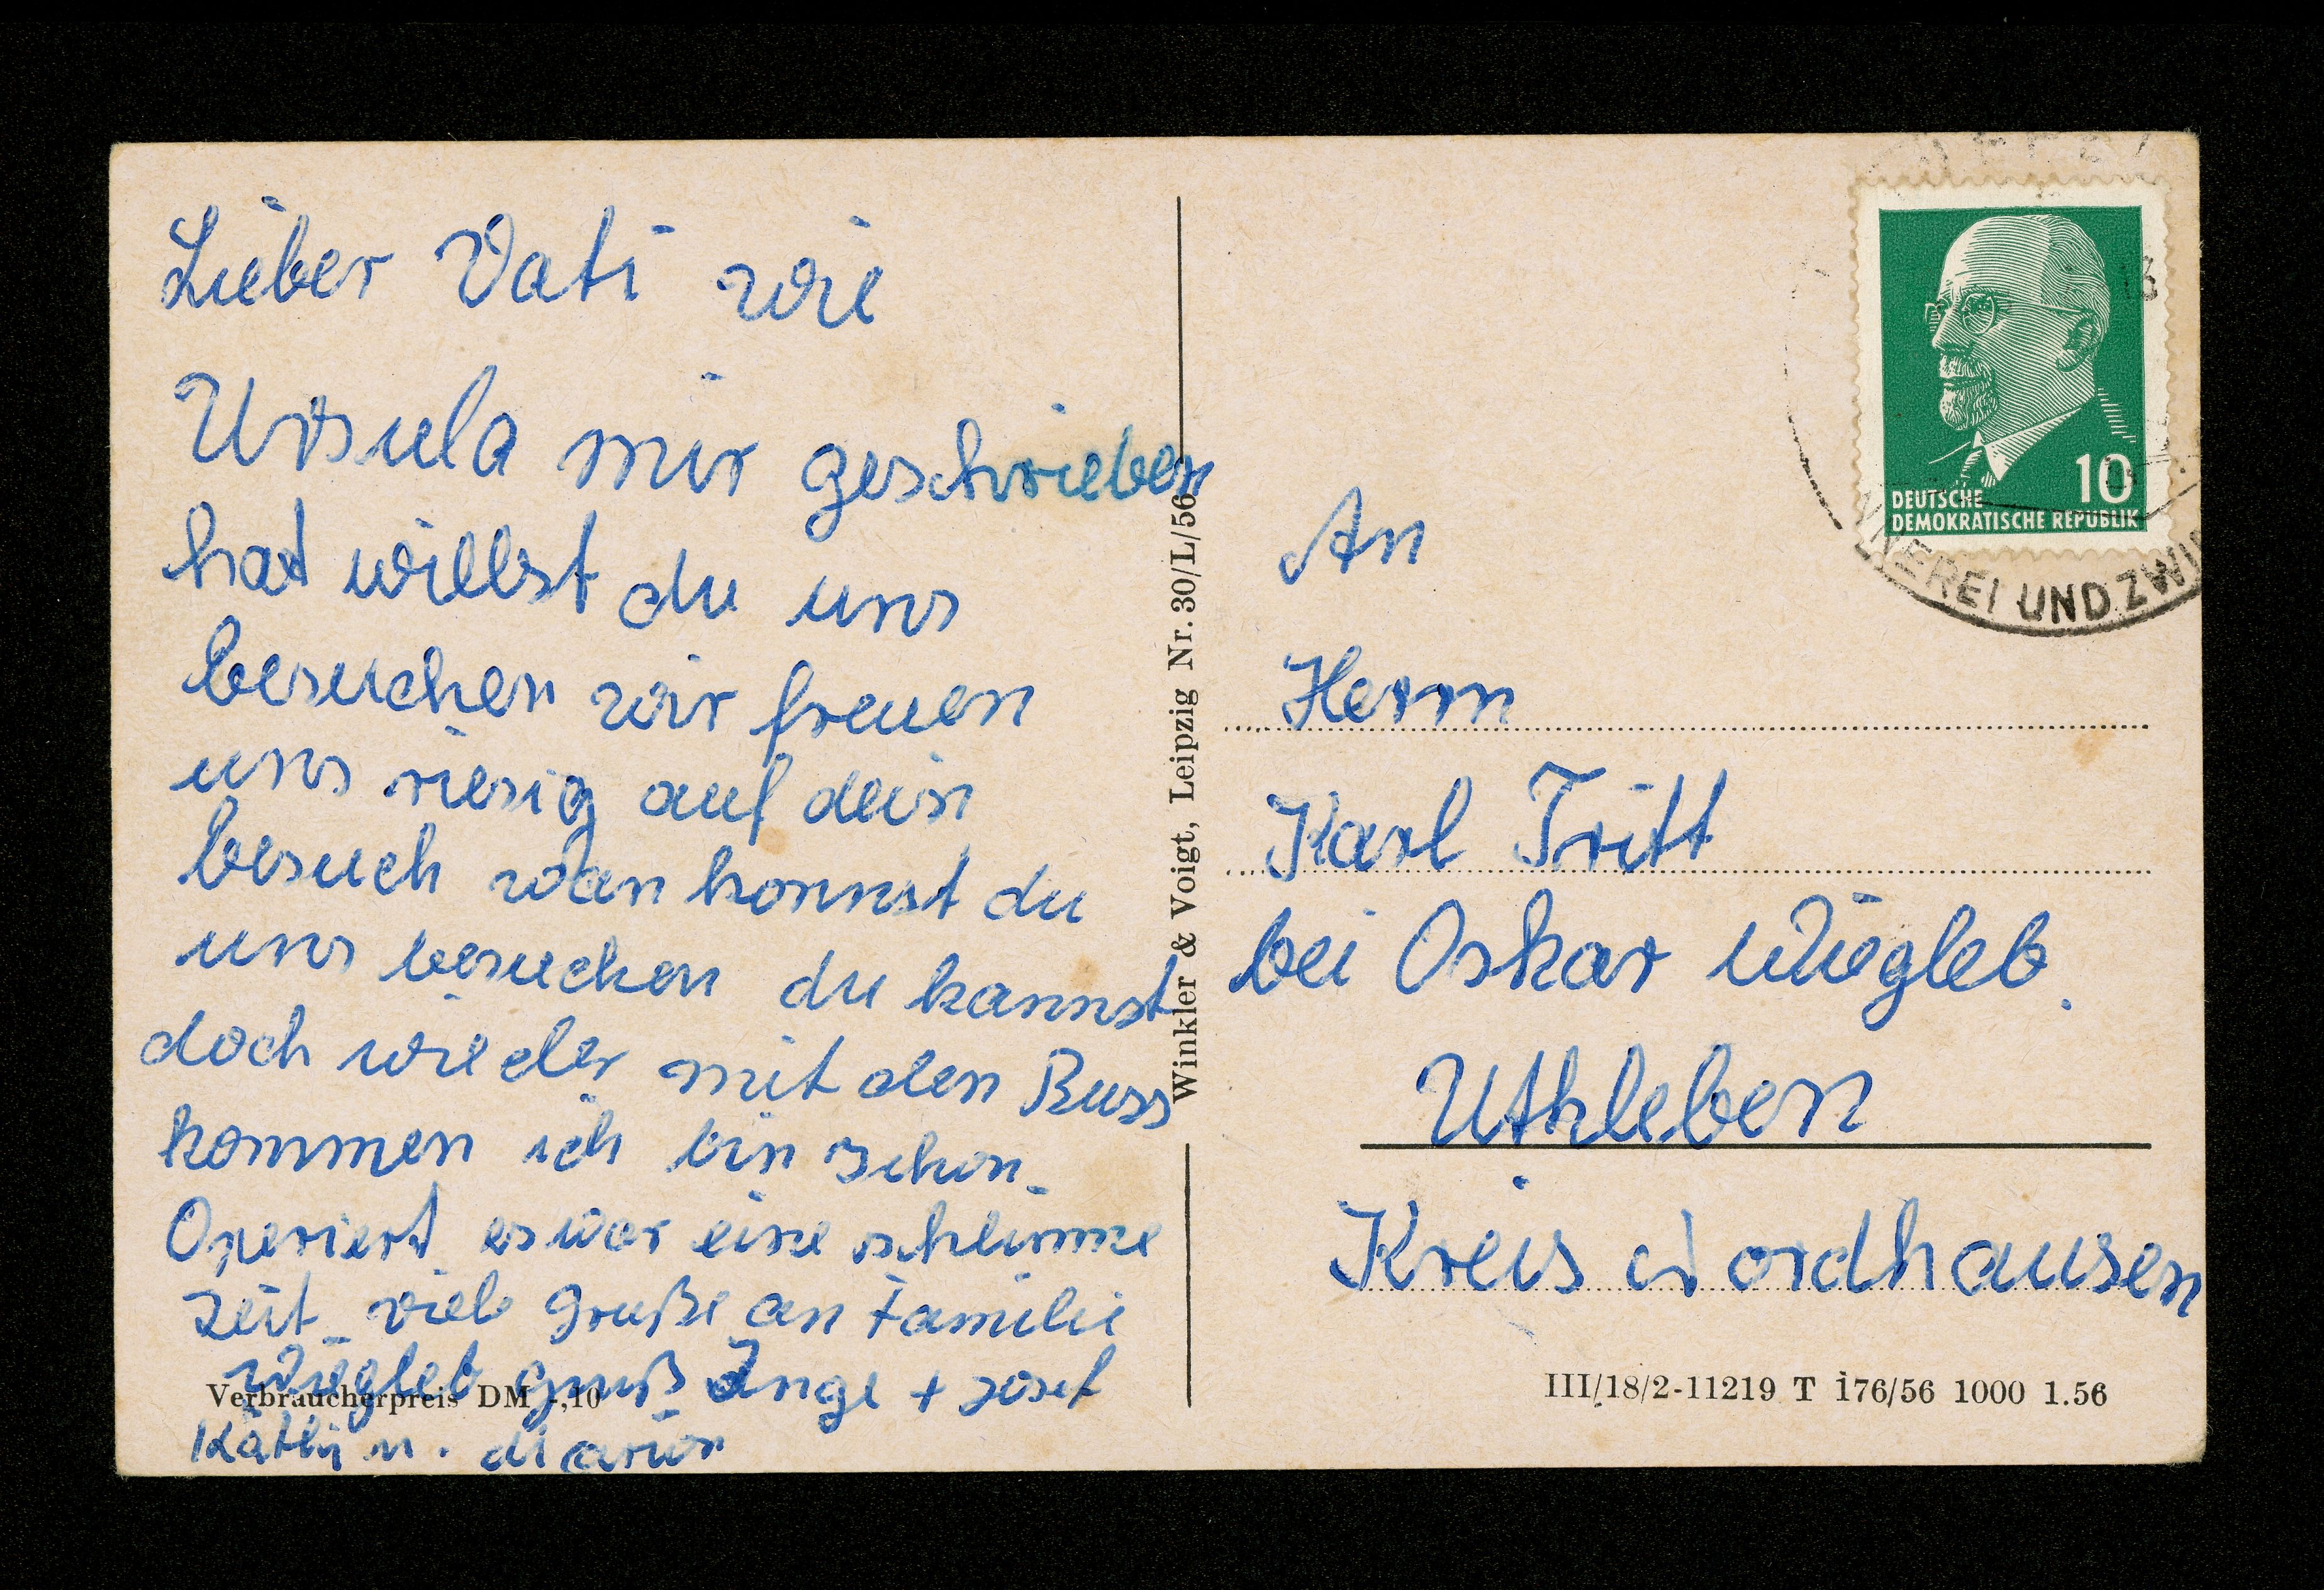 Lieber Vati wie
Ursula mir geschrieben
hat willst du uns
besuchen wir freuen
uns riesig auf dein
besuch wan konnst du
uns besuchen du kannst
doch wieder mit den Buss
kommen ich bin schon
Operiert es war eine schlimme
Zeit viele Gruße an Familie
Wiegleb gruß Inge + Josef
Kathy u. Marion
Verbraucherpreis DM -,10
Winkler & Voigt, Leipzig Nr. 30/L/56
10
DEUTSCHE
DEMOKRATISCHE REPUBLIK
NEREI UND ZWI
An
Herrn
Karl Tritt
bei Oskar Wiegleb.
Uthleben
Kreis Nordhausen
III/18/2-11219 T 176/56 1000 1.56